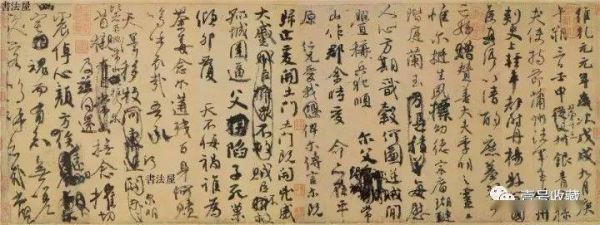 书法屋
維乾元元年歲次戊戌九月庚
午朔三日壬申第十三叔銀青光祿
夫使持節蒲州諸軍事蒲州
刺史上輕車都尉丹楊縣開
國侯真卿以清酌庶羞祭于
亡姪贈贊善大夫季明之靈曰
惟爾挺生夙標幼德宗廟瑚璉
階庭蘭玉每慰
人心方期戩穀何圖逆賊間
釁稱兵犯順爾父竭誠常
山作郡余時受命亦在平
原仁兄愛我俾爾傳言爾既
歸止爰開土門土門既開凶威
大蹙賊臣不救
孤城圍逼父陷子死巢
傾卵覆天不悔禍誰為
荼毒念爾遘殘百身何贖
嗚呼哀哉吾承
天澤移牧河關泉明
首櫬及茲同還
撫念摧切
震悼心顏方俟
宅魂而有知無嗟
久客嗚呼哀哉尚饗
书法屋
壹号收藏